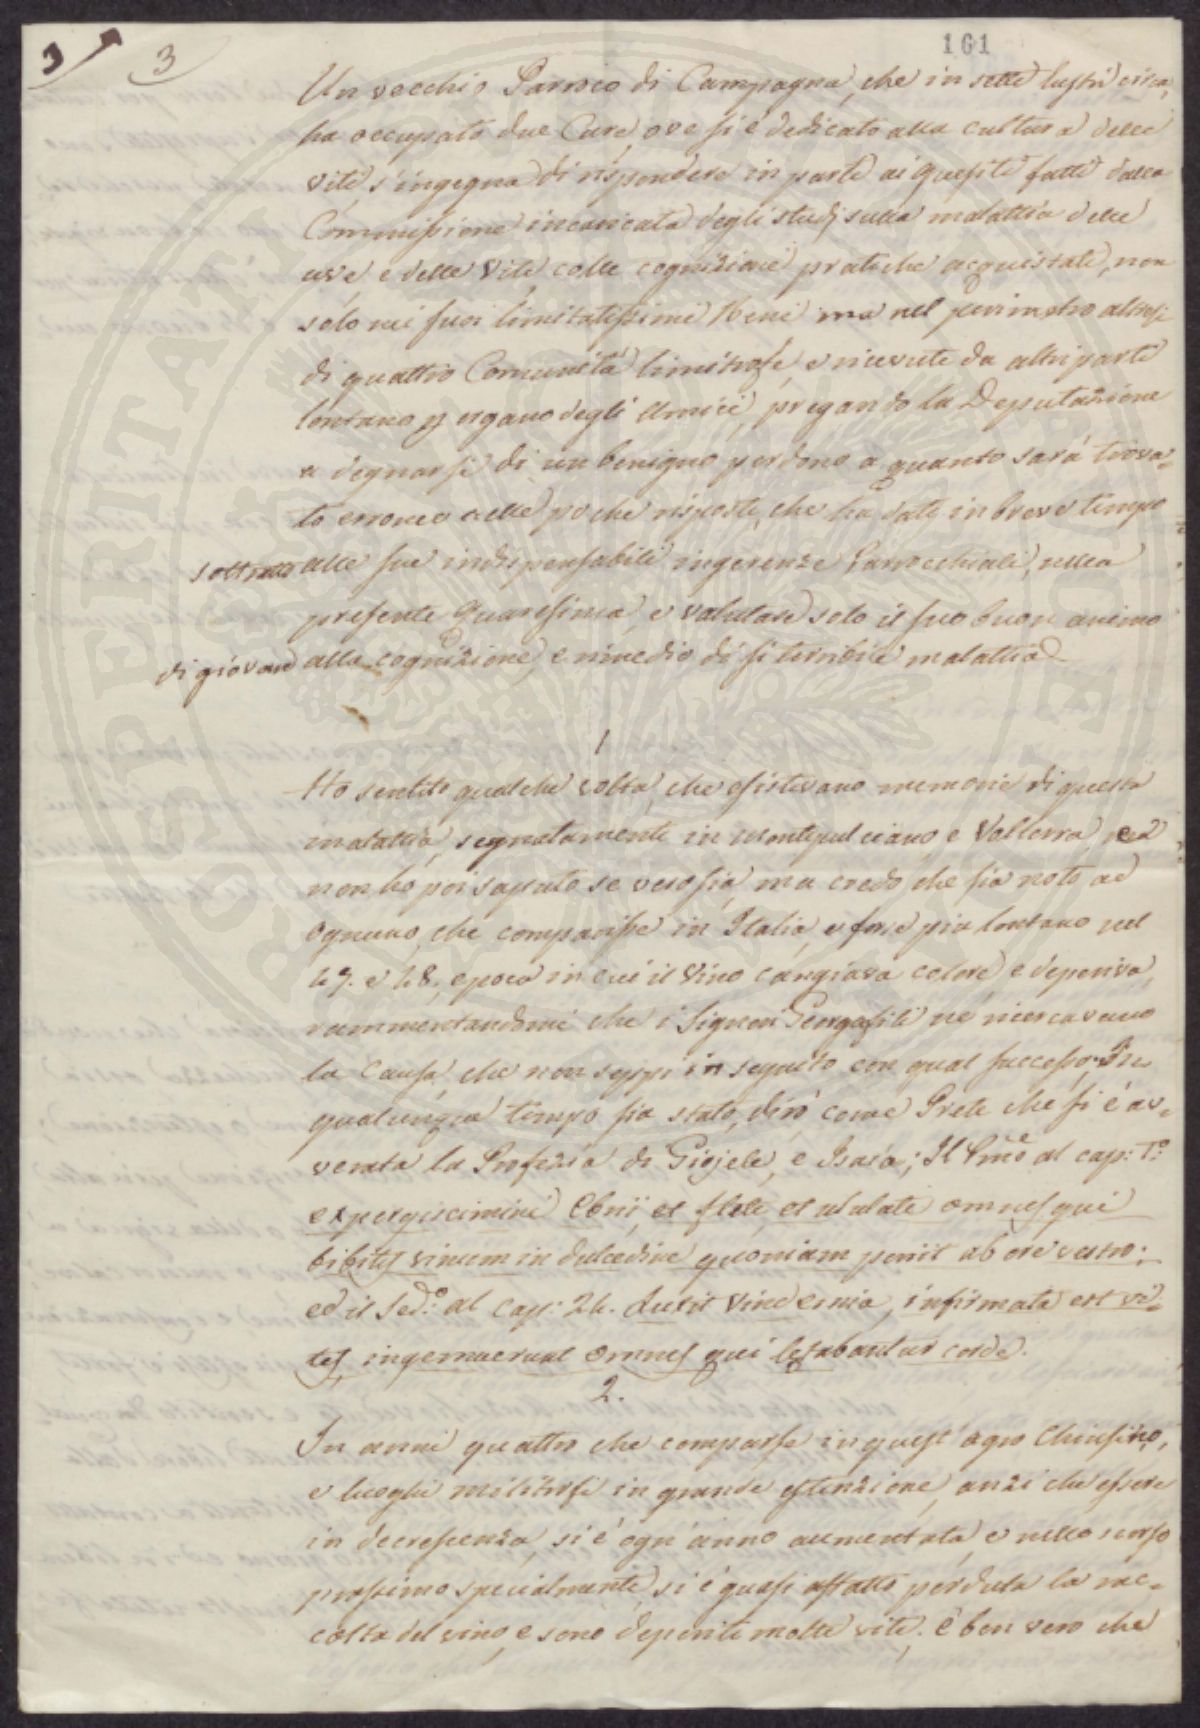 3 3
161
Un vecchio Parroco di Campagna, che in sette lustri circa,
ha occupato due Cure, ove si è dedicato alla cultura delle
viti, s'ingegna di rispondere in parte ai quesiti fatti dalla
Commissione incaricata degli studj sulla malattia delle
uve e delle viti, colle cognizioni pratiche acquistate, non
solo nei suoi limitatissimi Beni ma nel perimetro altresì
di quattro Comunità limitrofe, e ricevute da altri parti
lontano p organo degli Amici, pregando la Deputazione
a degnarsi di un benigno perdono a quanto sarà trova-
to erroneo nelle poche risposte, che ha date in breve tempo
sottratto alle sue indispensabili ingerenze Parrocchiali, nella
presente Quaresima, e valutare solo il suo buon animo
di giovare alla cognizione, e rimedio di sì terribile malattia
1
Ho sentito qualche volta, che esistevano memorie di questa
malattia, segnatamente in Montepulciano, e Volterra, ed
non ho poi saputo se vero sia, ma credo che sia noto ad
Ognuno, che comparisse in Italia, e forse più lontano nel
47. e 48., epoca in cui il Vino cangiava colore e deperiva,
rammentandomi che i Signori Georgofili ne ricercavano
la Causa, che non seppi in seguito con qual successo. In
qualunque tempo sia stato, dirò come Prete che si è av-
verata la Profezia di Giojele, e Isaia; Il Pmo al cap: 1o
expergiscimini Ebrii, et flete, et ululate omnes qui
bibitis vinum in dulcedine quoniam periit ab ore vestro;
ed il Sedo: al Cap: 24. Luxit Vindemia, infirmata est vi-
tis, ingemuerunt omnes qui letabantur corde.
2.
In anni quattro che comparse in quest'agro Chiusino,
e luoghi militrofi in grande estenzione, anzi che essere
in decrescenza, si è ogn'anno aumentata, e nello scorso
prossimo specialmente, si è quasi affatto perduta la rac-
colta del vino, e sono deperite molte viti. È ben vero che